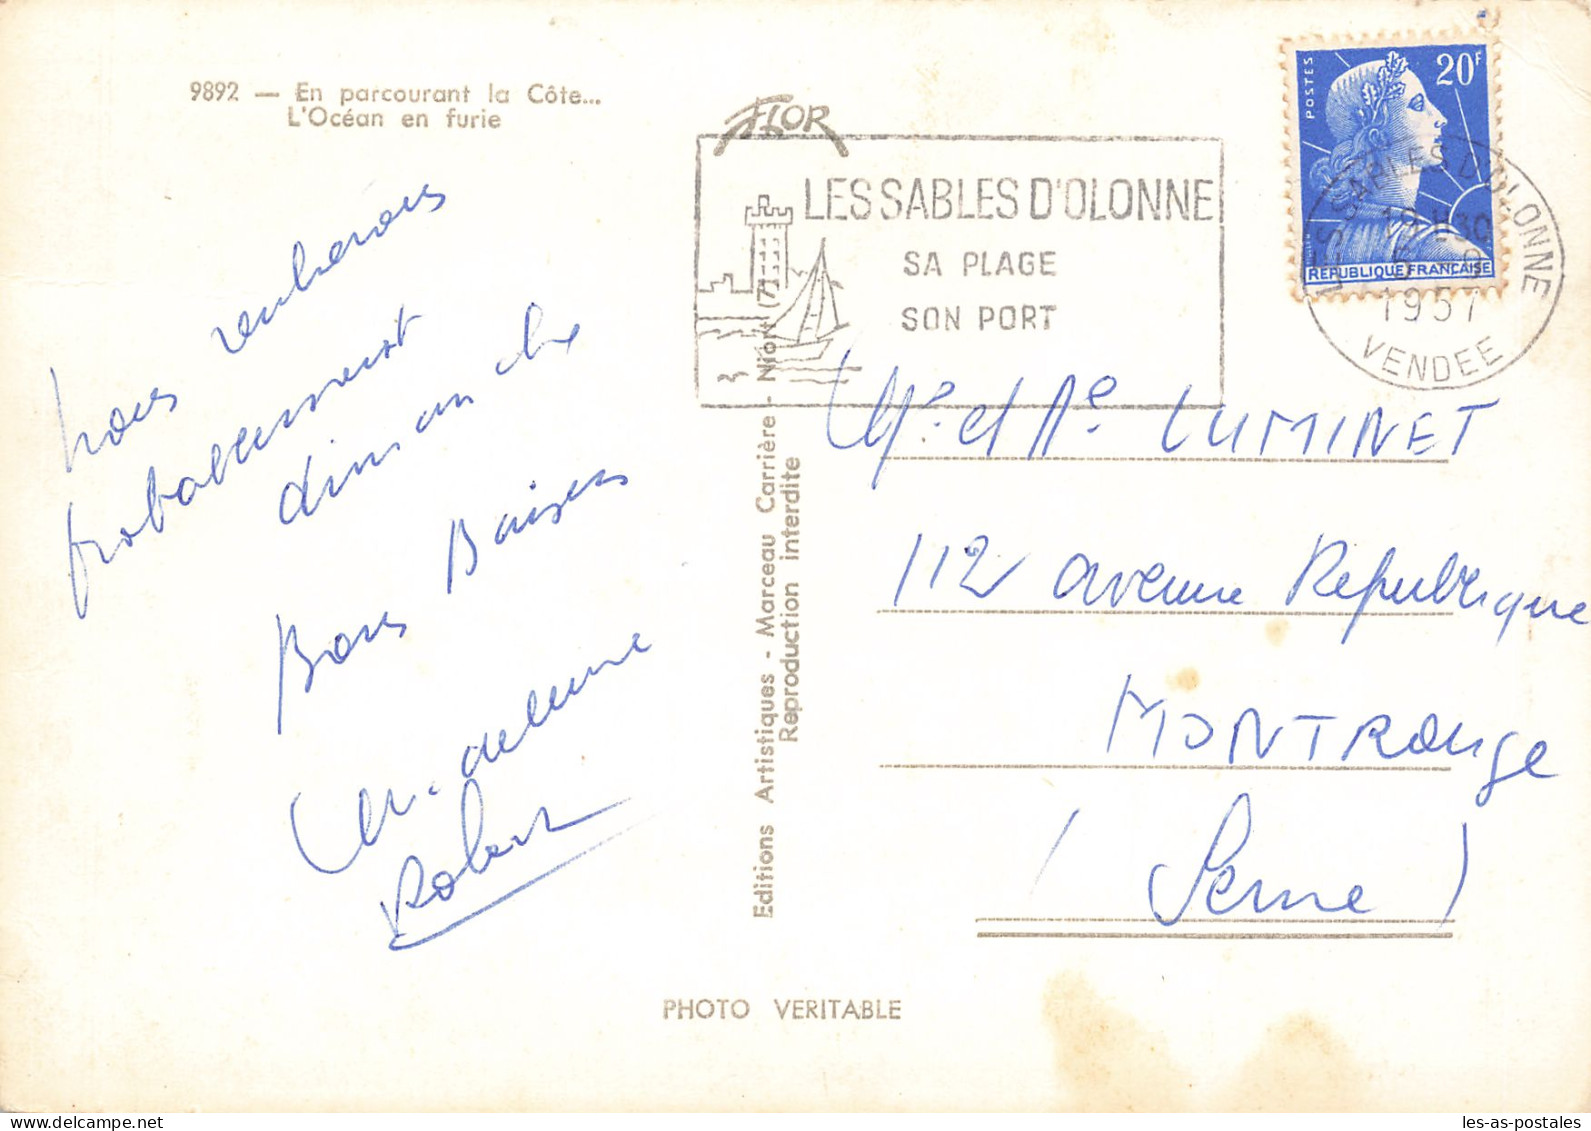 9892 — En parcourant la Côte...
L'Océan en furie
nous rentrerons
probablement
dimanche
Bons Baisers
Madeleine
Robert
FLOR
LES SABLES D'OLONNE
SA PLAGE
SON PORT
POSTES
20F
REPUBLIQUE FRANÇAISE
LES SABLES D'OLONNE
19H30
1957
VENDEE
Editions Artistiques - Marceau Carrière - Niort (7)
Reproduction interdite
Mr et Me LUMINET
112 avenue République
MONTRouge
(Seine)
PHOTO VERITABLE
les-as-postales - delcampe.net